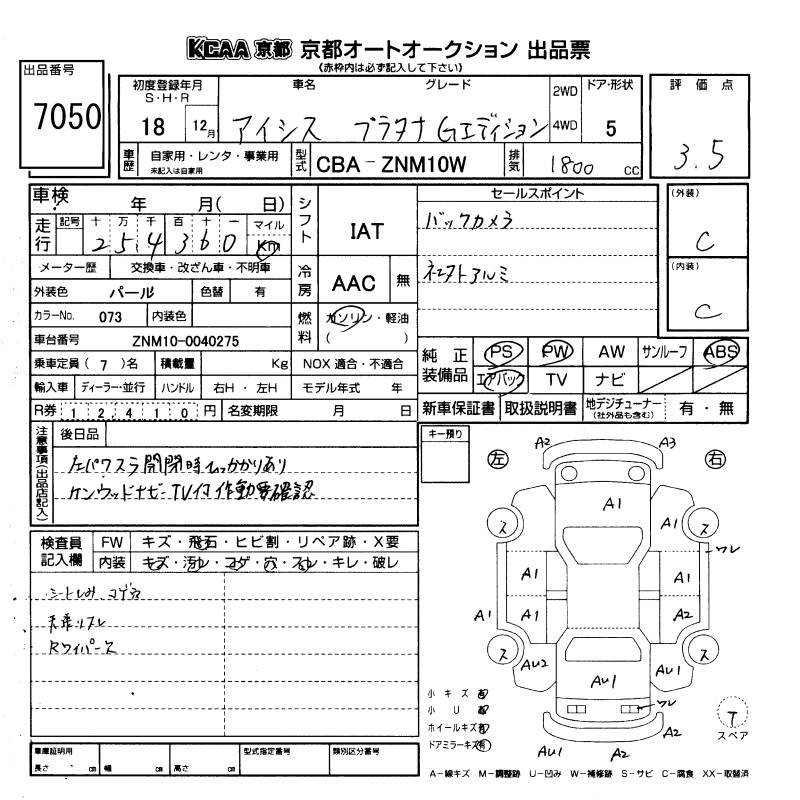 KCAA 京都 京都オートオークション 出品票
(赤枠内は必ず記入して下さい)
出品番号
7050
初度登録年月
S・H・R
車名
グレード
2WD
4WD
ドア・形状
評価点
18
12月
アイシス プラタナ Gエディション
5
3.5
車歴
自家用・レンタ・事業用
未記入は自家用
型式
CBA-ZNM10W
排気
1800 cc
車検
年 月( 日)
シフト
IAT
セールスポイント
バックカメラ
(外装)
C
走行
記号
十 万 千 百 十 一
2 5 4 3 6 0
マイル
Km
メーター歴
交換車・改ざん車・不明車
冷房
AAC
無
(内装)
C
外装色
パール
色替
有
カラーNo.
073
内装色
燃料
ガソリン・軽油
( )
車台番号
ZNM10-0040275
純正装備品
PS
PW
AW
サンルーフ
ABS
エアバック
TV
ナビ
乗車定員( 7 )名
積載量
Kg
NOX 適合・不適合
輸入車
ディーラー・並行
ハンドル
右H・左H
モデル年式 年
新車保証書
取扱説明書
地デジチューナー
(社外品も含む)
有・無
R券
12,410円
名変期限
月 日
注意事項(出品店記入)
後日品
左パワスラ開閉時ひっかかりあり
ケンウッドナビ-TVイマ作動要確認
キー預り
左
右
A2
A3
A1
A1
ス
ス
ワレ
A1
A1
A1
A1
A2
ス
ス
AU2
AU1
AU1
ワレ
A2
AU1
A2
T
スペア
検査員記入欄
FW
キズ・飛石・ヒビ割・リペア跡・X要
内装
キズ・汚レ・コゲ・穴・スレ・キレ・破レ
シートしみ コゲ穴
天張リスレ
Rワイパース
小キズ 有
小U 有
ホイールキズ 有
ドアミラーキズ 有
車庫証明用
長さ cm
幅 cm
高さ cm
型式指定番号
類別区分番号
A-線キズ M-調整跡 U-凹み W-補修跡 S-サビ C-腐食 XX-取替済